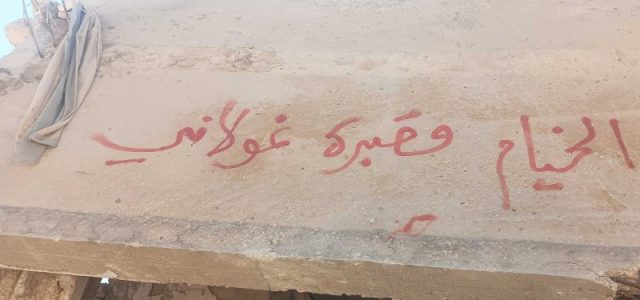 الخيام مقبره غولاني